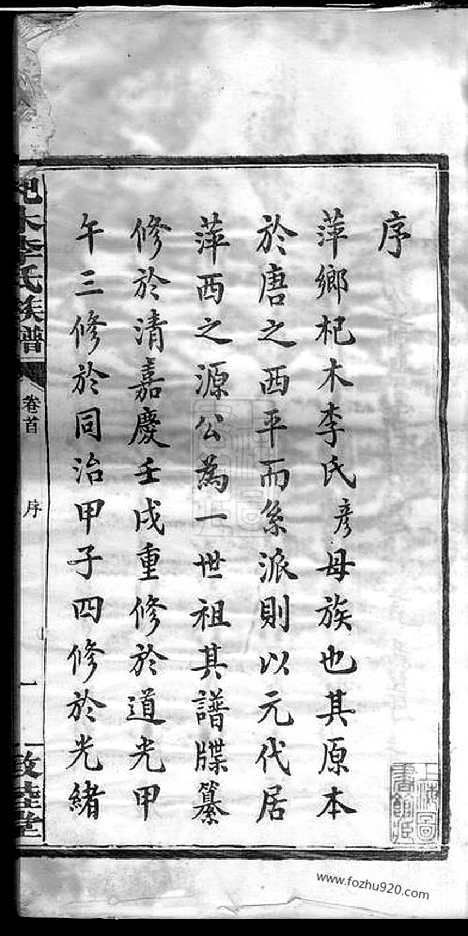 序
萍鄉杞木李氏彥母族也其原本
於唐之西平而系派則以元代居
萍西之源公為一世祖其譜牒纂
修於清嘉慶壬戌重修於道光甲
午三修於同治甲子四修於光緒
杞木李氏族譜
卷首
序
一
敦睦堂
上海圖書館藏
www.fozhu920.com